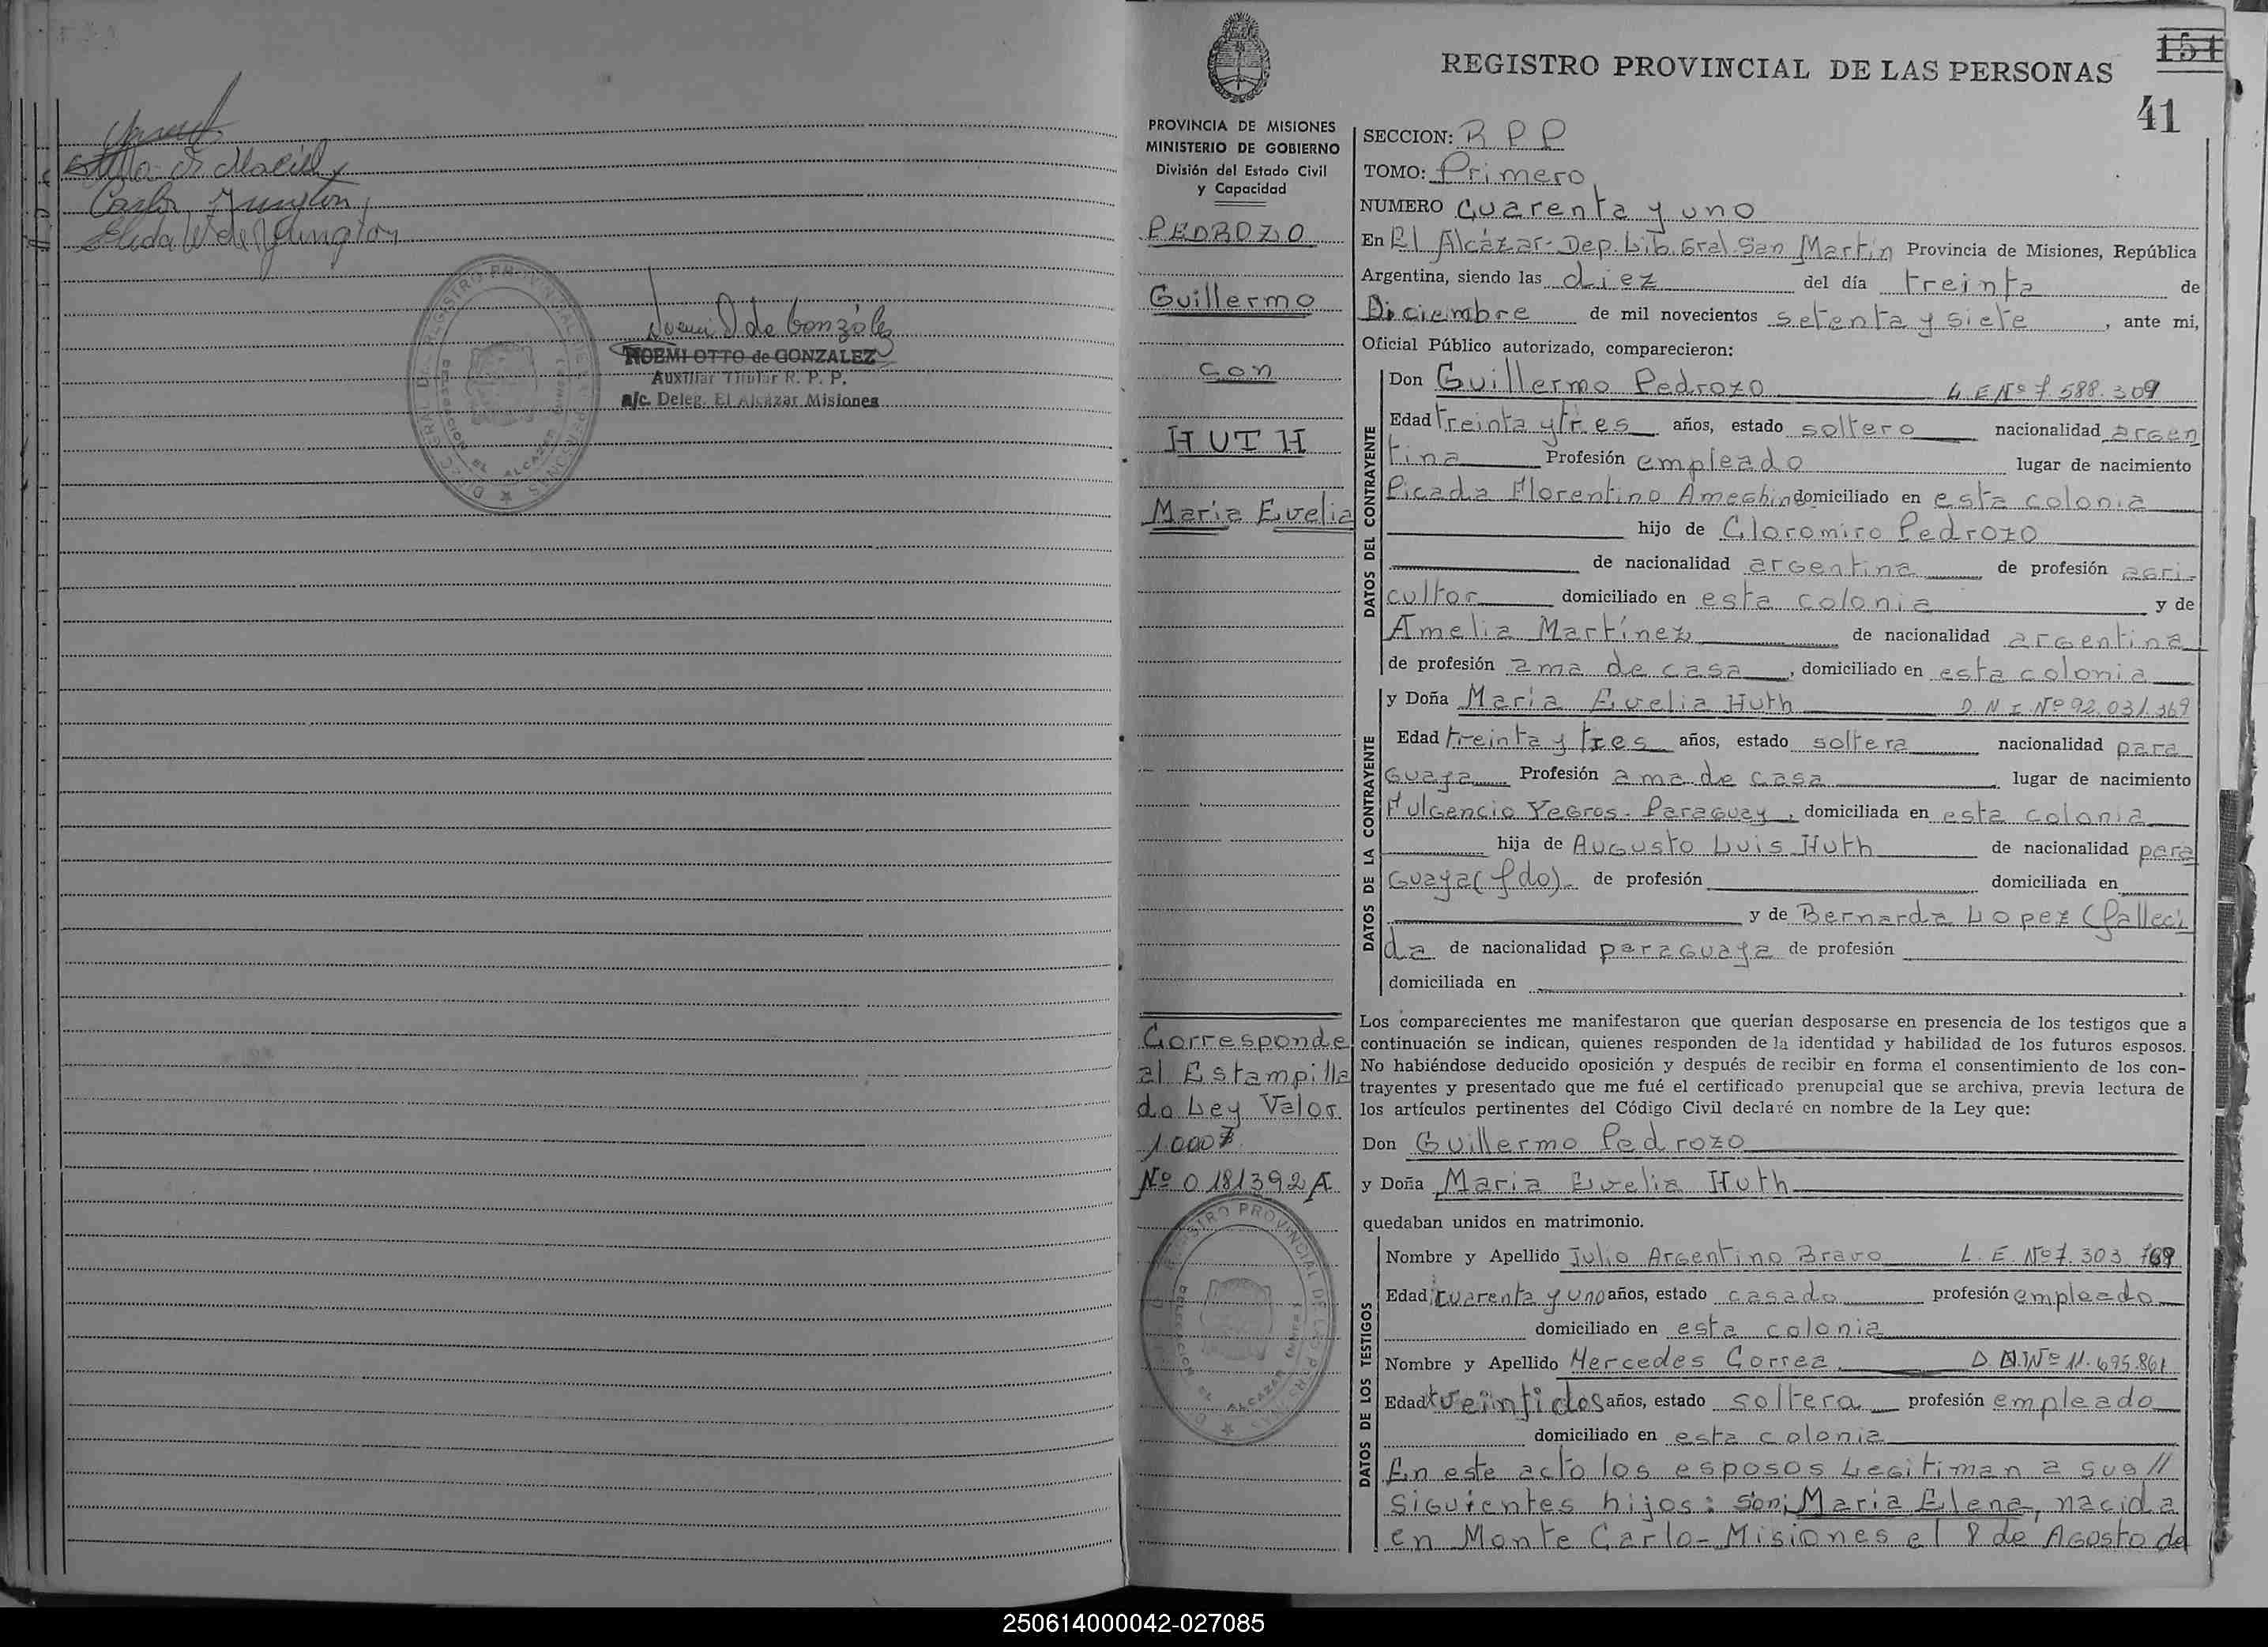 de Maciel
Carlos Jungton
Elida W de Jungton
Noemi O de González
NOEMI OTTO de GONZALEZ
Auxiliar Titular R. P. P.
a/c. Deleg. El Alcázar Misiones
REGISTRO PROVINCIAL DE LAS PERSONAS
151
41
PROVINCIA DE MISIONES
MINISTERIO DE GOBIERNO
División del Estado Civil
y Capacidad
PEDROZO
Guillermo
con
HUTH
Maria Evelia
Corresponde
al Estampilla
do Ley Valor
1.000$
Nº 0181392A
SECCION: R P P
TOMO: Primero
NUMERO Cuarenta y uno
En El Alcázar-Dep. Lib. Gral San Martín Provincia de Misiones, República
Argentina, siendo las diez del día treinta de
Diciembre de mil novecientos setenta y siete, ante mi,
Oficial Público autorizado, comparecieron:
DATOS DEL CONTRAYENTE
Don Guillermo Pedrozo L.E Nº 7.588.309
Edad treinta y tres años, estado soltero nacionalidad argen
tina Profesión empleado lugar de nacimiento
Picada Florentino Ameghin domiciliado en esta colonia
hijo de Cloromiro Pedrozo
de nacionalidad argentina de profesión agri-
cultor domiciliado en esta colonia y de
Amelia Martínez de nacionalidad argentina
de profesión ama de casa, domiciliado en esta colonia
DATOS DE LA CONTRAYENTE
y Doña María Evelia Huth D.N.I. Nº 92.031.369
Edad treinta y tres años, estado soltera nacionalidad para
guaya Profesión ama de casa lugar de nacimiento
Fulgencio Yegros - Paraguay, domiciliada en esta colonia
hija de Augusto Luis Huth de nacionalidad para
guaya (fdo) de profesión domiciliada en
y de Bernarda Lopez (falleci
da de nacionalidad paraguaya de profesión
domiciliada en
Los comparecientes me manifestaron que querían desposarse en presencia de los testigos que a
continuación se indican, quienes responden de la identidad y habilidad de los futuros esposos.
No habiéndose deducido oposición y después de recibir en forma el consentimiento de los con-
trayentes y presentado que me fué el certificado prenupcial que se archiva, previa lectura de
los artículos pertinentes del Código Civil declaré en nombre de la Ley que:
Don Guillermo Pedrozo
y Doña Maria Evelia Huth
quedaban unidos en matrimonio.
DATOS DE LOS TESTIGOS
Nombre y Apellido Julio Argentino Bravo L.E. Nº 7.303.769
Edad cuarenta y uno años, estado casado profesión empleado
domiciliado en esta colonia
Nombre y Apellido Mercedes Correa D.N.I Nº 11.695.861
Edad veintidos años, estado soltera profesión empleado
domiciliado en esta colonia
En este acto los esposos Legitiman a sus //
siguientes hijos: son; Maria Elena, nacida
en Monte Carlo-Misiones el 8 de Agosto de
250614000042-027085